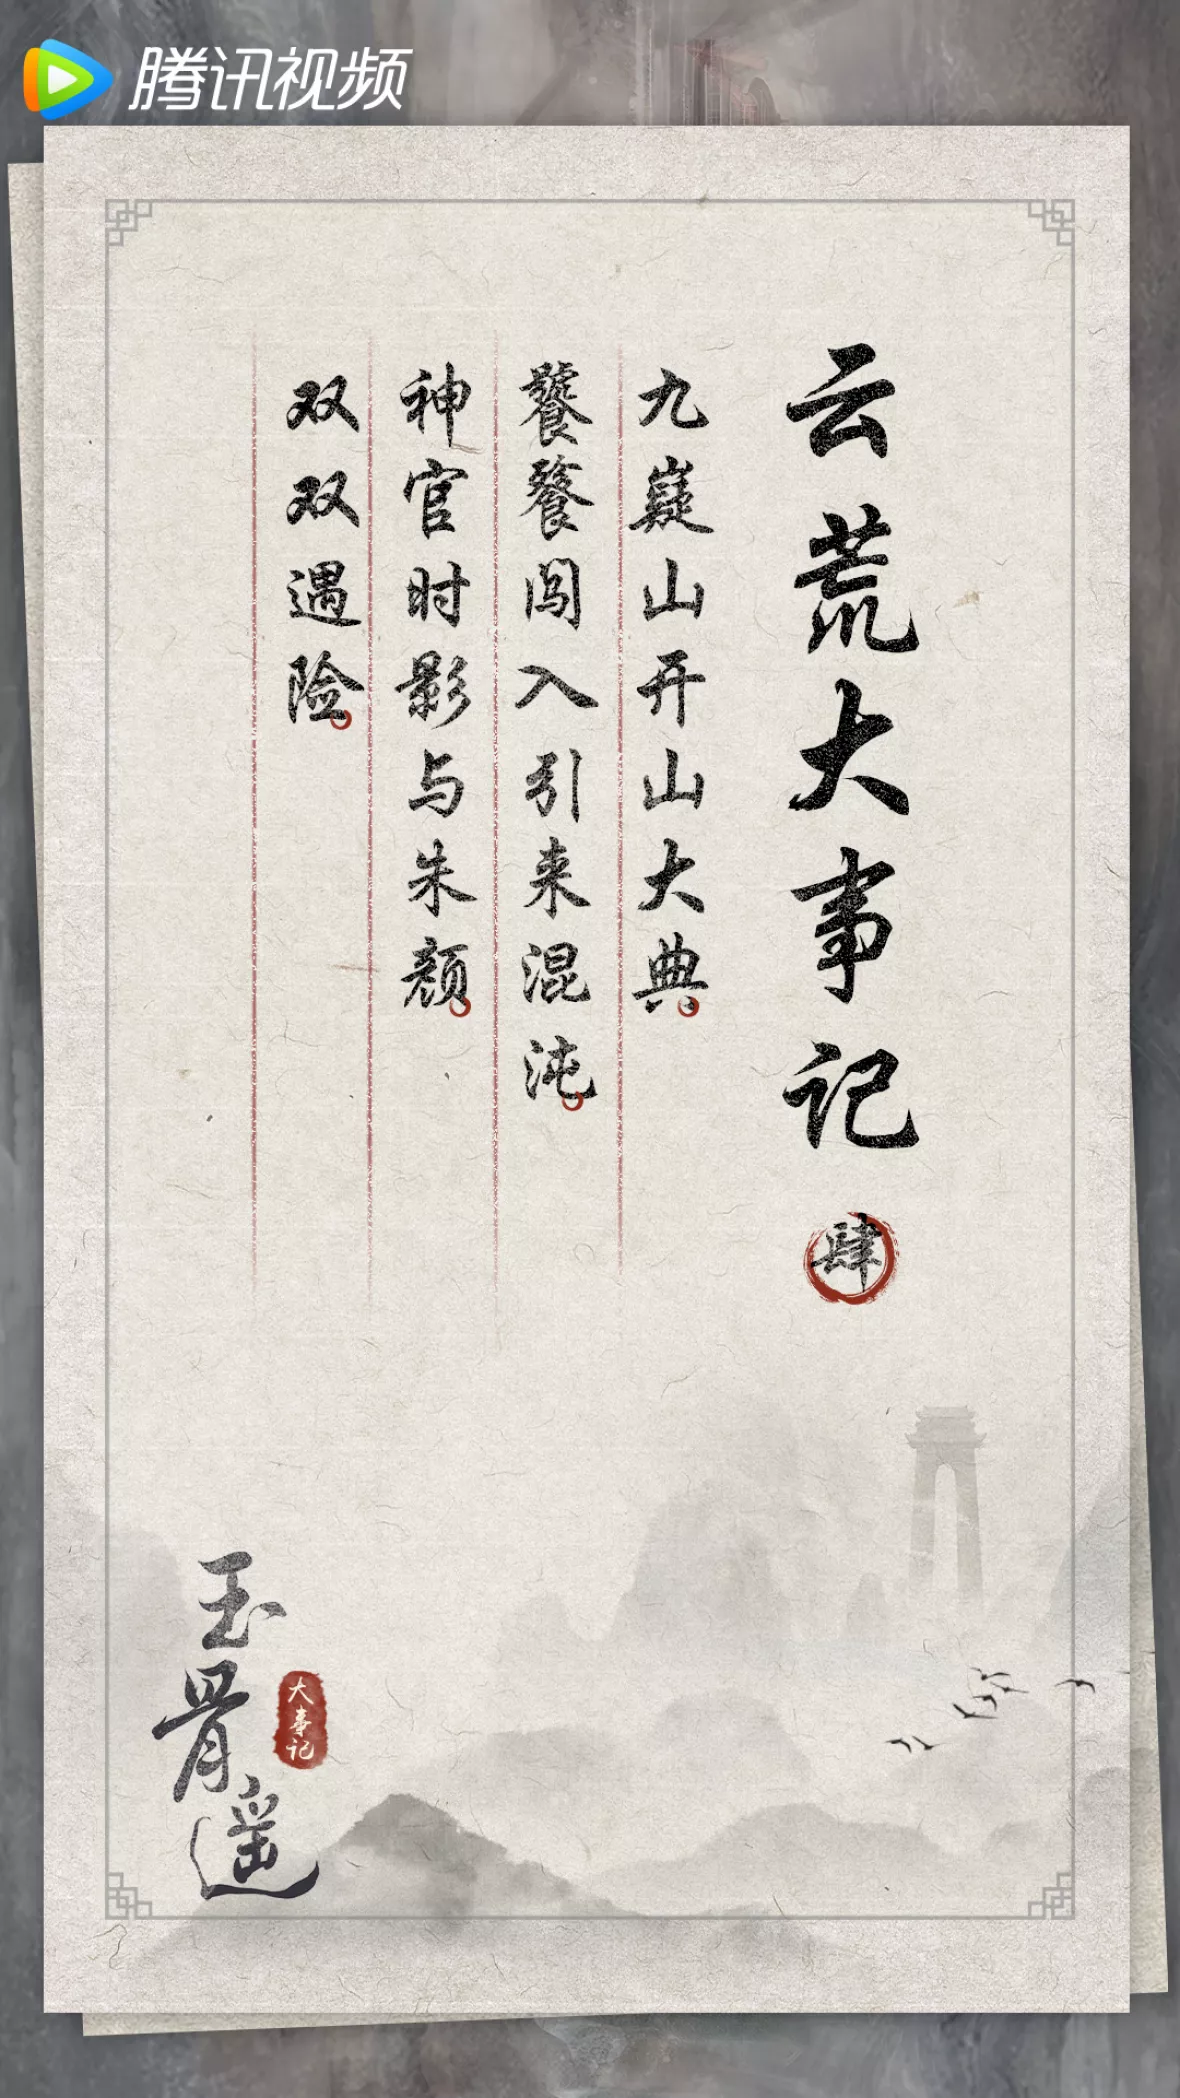 腾讯视频
云荒大事记
肆
九嶷山开山大典
饕餮闯入引来混沌
神官时影与朱颜
双双遇险
玉骨遥
大事记